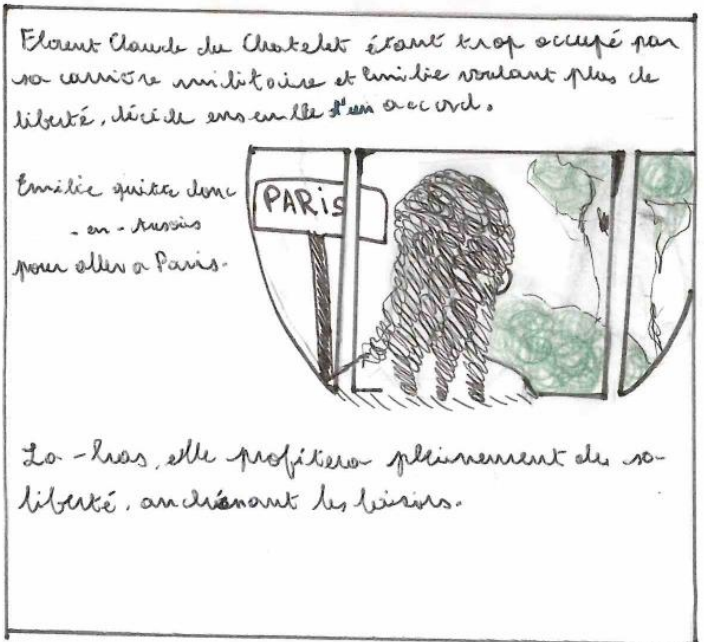 Florent Claude du Chatelet étant trop occupé par
sa carrière militaire et Emilie voulant plus de
liberté, décide ensemble d'un accord.
Emilie quitte donc
-en-Auxois
pour aller a Paris.
PARIS
La-bas, elle profitera pleinement de sa
liberté, enchénant les loisirs.